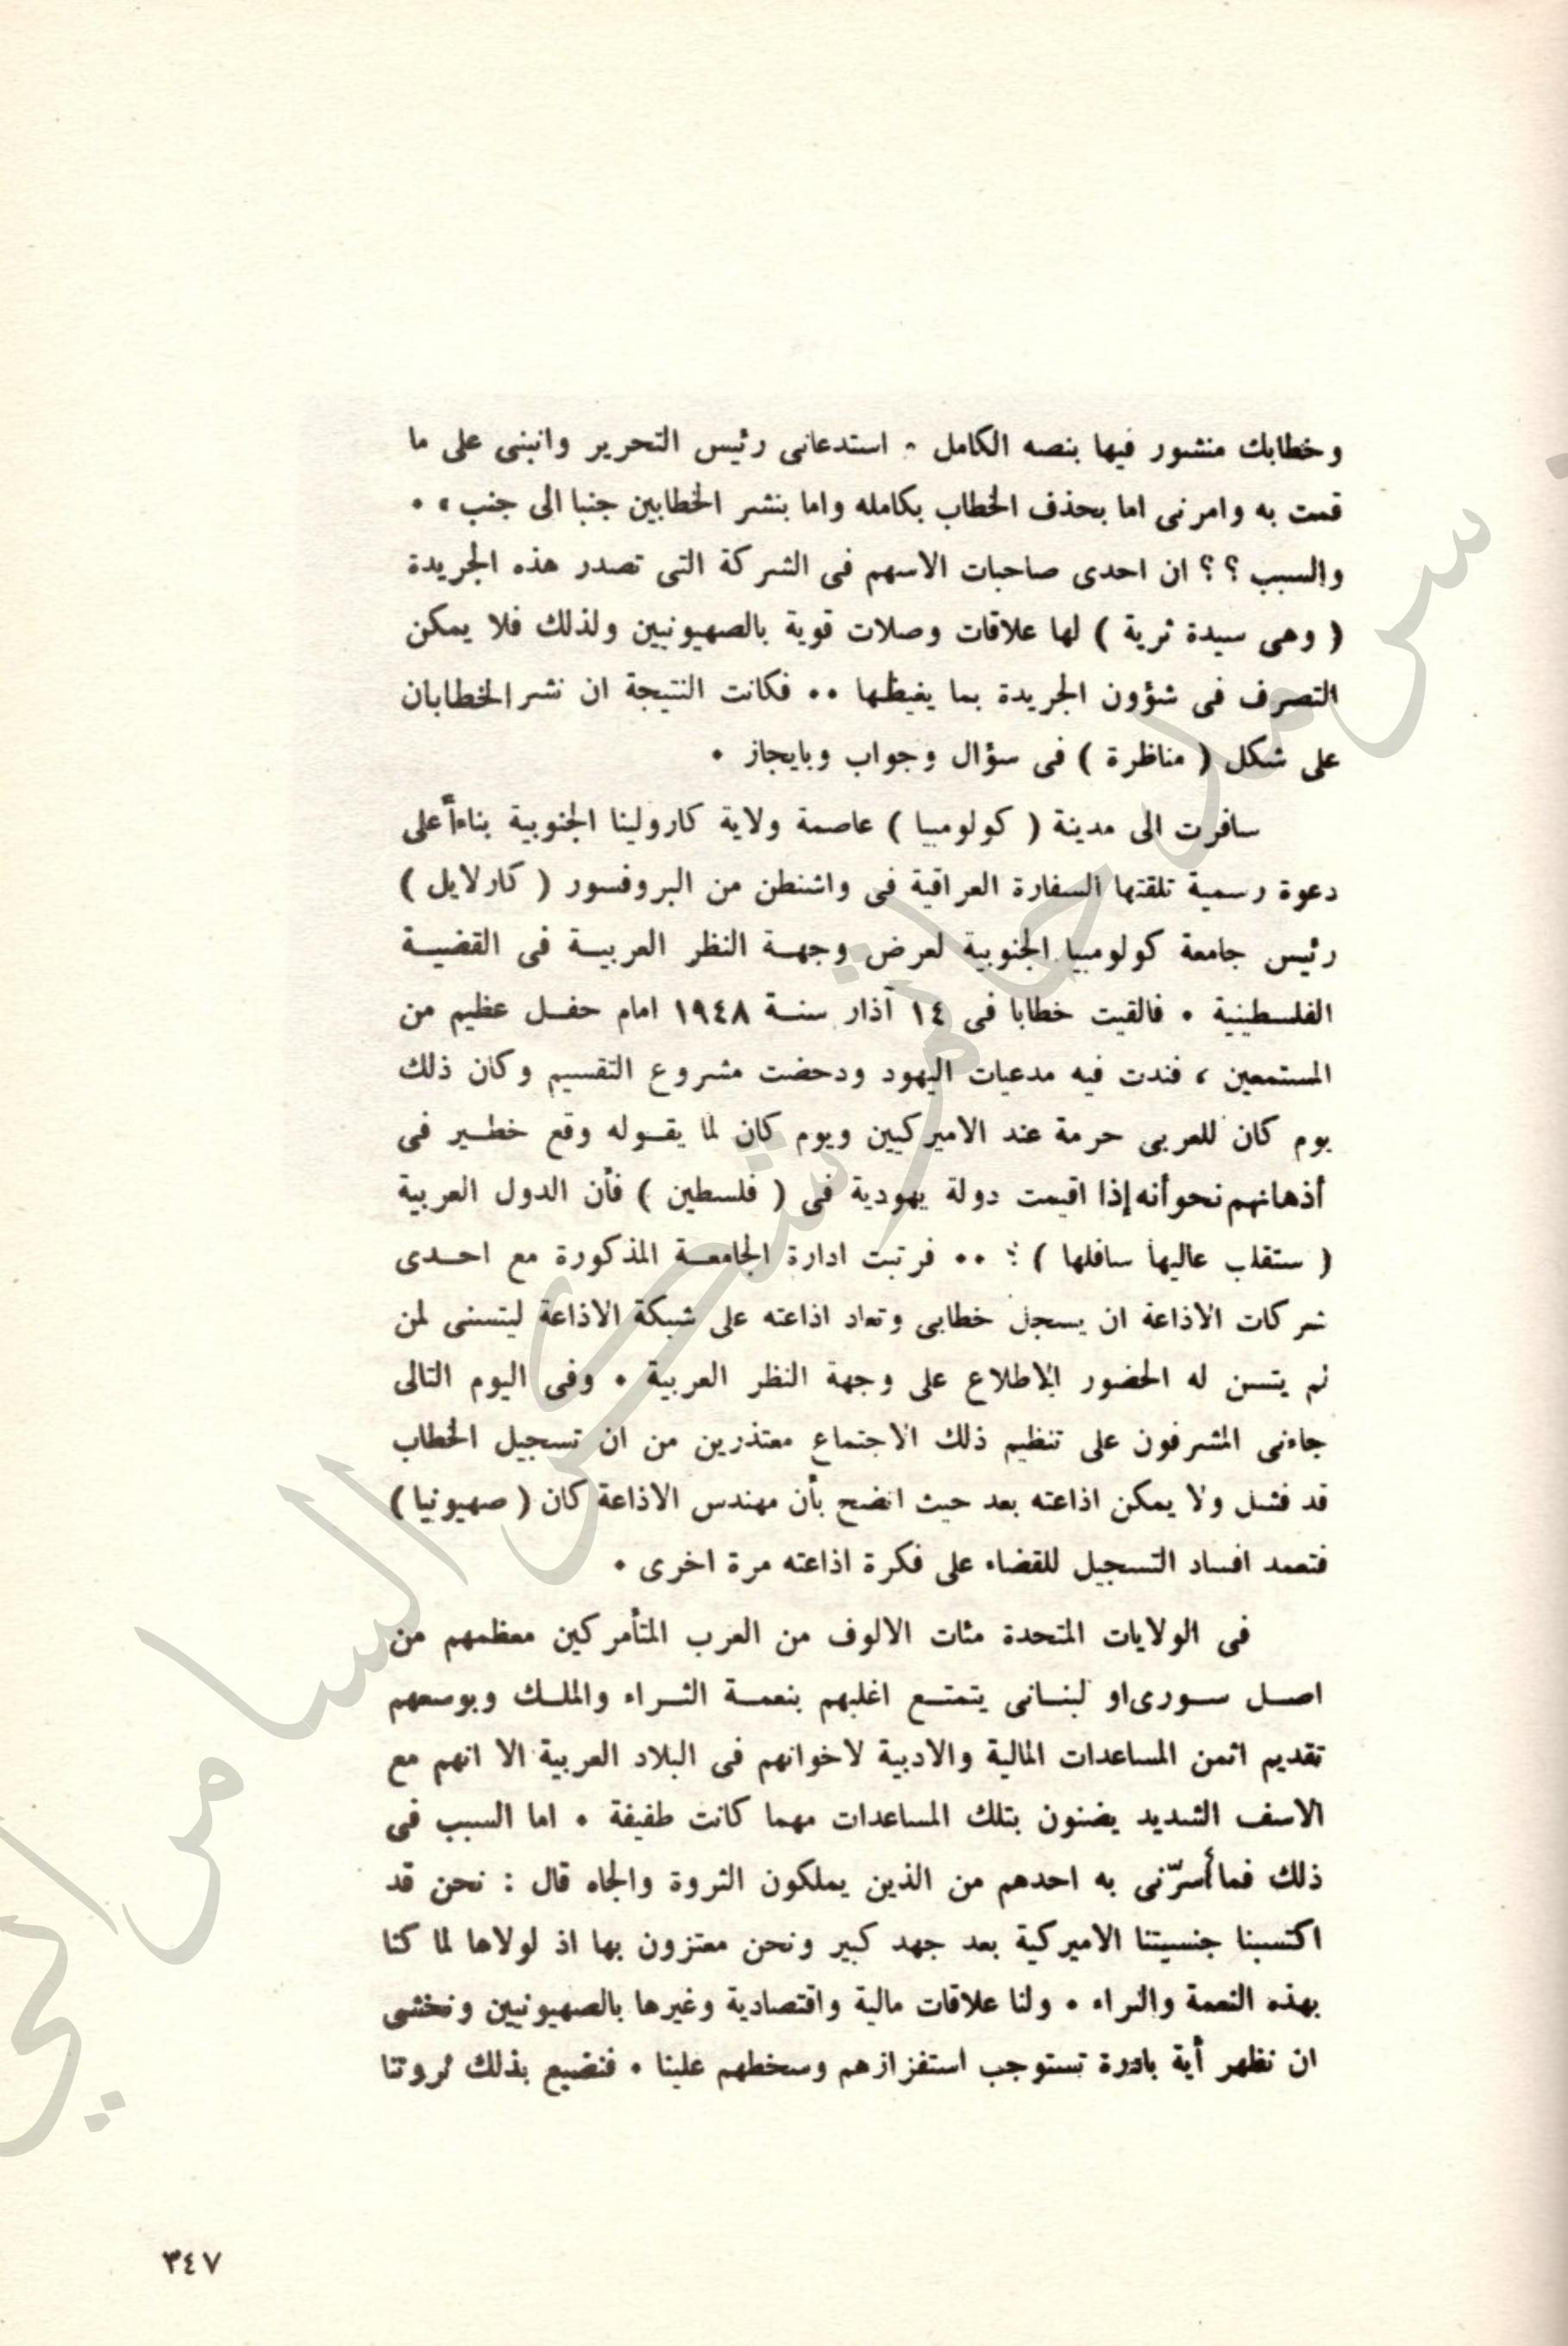 وخطابك منشور فيها بنصه الكامل ٠ استدعانى رئيس التحرير وانبنى على ما
قمت به وامرنى اما بحذف الخطاب بكامله واما بنشر الخطابين جنبا الى جنب » ٠
والسبب ؟ ؟ ان احدى صاحبات الاسهم فى الشركة التى تصدر هذه الجريدة
( وهى سيدة ثرية ) لها علاقات وصلات قوية بالصهيونيين ولذلك فلا يمكن
التصرف فى شؤون الجريدة بما يغيظها ٠٠ فكانت النتيجة ان نشر الخطابان
على شكل ( مناظرة ) فى سؤال وجواب وبايجاز ٠
سافرت الى مدينة ( كولومبيا ) عاصمة ولاية كارولينا الجنوبية بناءاً على
دعوة رسمية تلقتها السفارة العراقية فى واشنطن من البروفسور ( كارلايل )
رئيس جامعة كولومبيا الجنوبية لعرض وجهة النظر العربية فى القضية
الفلسطينية ٠ فالقيت خطابا فى ١٤ آذار سنة ١٩٤٨ امام حفل عظيم من
المستمعين ، فندت فيه مدعيات اليهود ودحضت مشروع التقسيم وكان ذلك
يوم كان للعربى حرمة عند الاميركيين ويوم كان لما يقوله وقع خطير فى
أذهانهم نحو أنه إذا اقيمت دولة يهودية فى ( فلسطين ) فأن الدول العربية
( ستقلب عاليها سافلها ) ؛ ٠٠ فرتبت ادارة الجامعة المذكورة مع احدى
شركات الاذاعة ان يسجل خطابى وتعاد اذاعته على شبكة الاذاعة ليتسنى لمن
لم يتسن له الحضور الاطلاع على وجهة النظر العربية ٠ وفى اليوم التالى
جاءنى المشرفون على تنظيم ذلك الاجتماع معتذرين من ان تسجيل الخطاب
قد فشل ولا يمكن اذاعته بعد حيث اتضح بأن مهندس الاذاعة كان ( صهيونيا )
فتعمد افساد التسجيل للقضاء على فكرة اذاعته مرة اخرى ٠
فى الولايات المتحدة مئات الالوف من العرب المتأمركين معظمهم من
اصل سورى او لبنانى يتمتع اغلبهم بنعمة الثراء والملك وبوسعهم
تقديم اثمن المساعدات المالية والادبية لاخوانهم فى البلاد العربية الا انهم مع
الاسف الشديد يضنون بتلك المساعدات مهما كانت طفيفة ٠ اما السبب فى
ذلك فما أسرّنى به احدهم من الذين يملكون الثروة والجاه قال : نحن قد
اكتسبنا جنسيتنا الاميركية بعد جهد كبير ونحن معتزون بها اذ لولاها لما كنا
بهذه النعمة والثراء ٠ ولنا علاقات مالية واقتصادية وغيرها بالصهيونيين ونخشى
ان نظهر أية بادرة تستوجب استفزازهم وسخطهم علينا ٠ فنضيع بذلك ثروتنا
٣٤٧